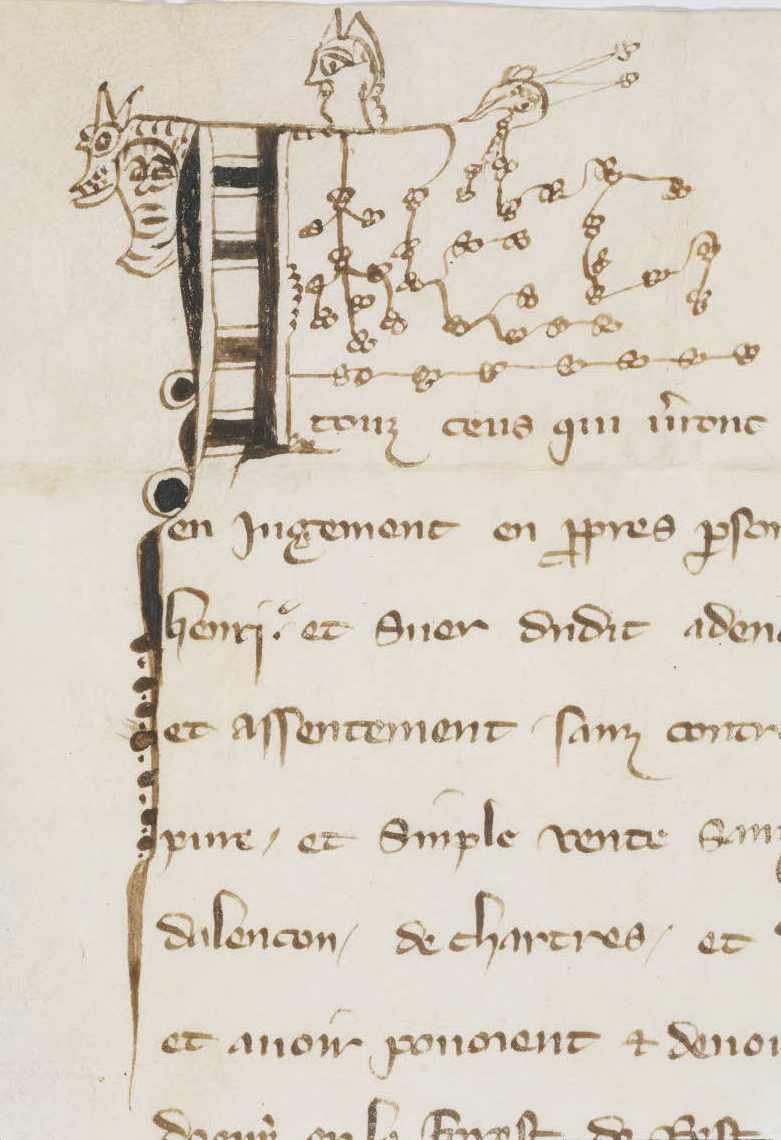 A touz ceus qui v̄ront
en Jugement en ꝓpres ꝑson
henri. et Suer dudit aden
et assentement sanz contr
pure / et Simple vente San
dalencon / de chartres / et
et auoir pouoient ⁊ deuoi
en la forest de